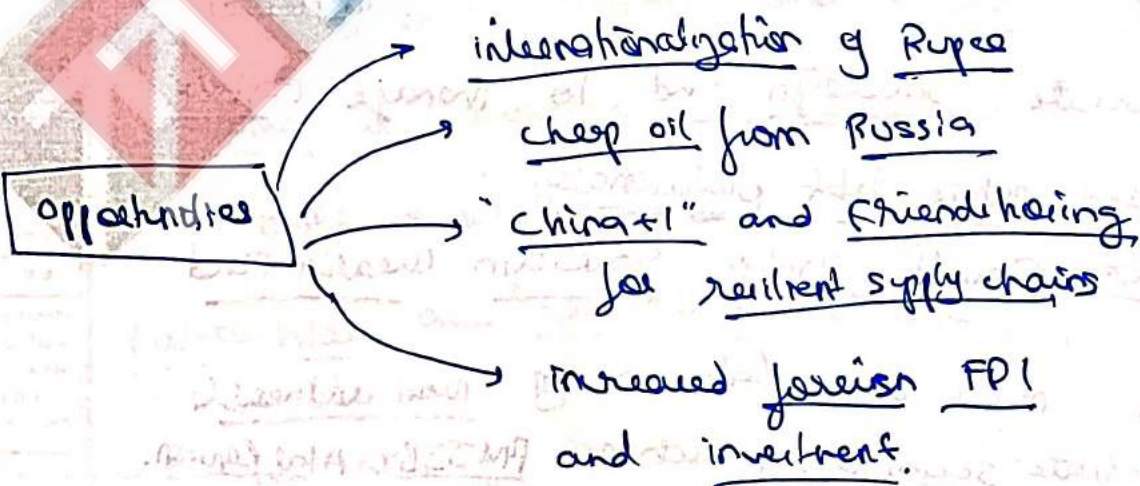 opportunities
internationalization of Rupee
cheap oil from Russia
"China+1" and friendshoring
for resilient supply chains
increased foreign FPI
and investment.